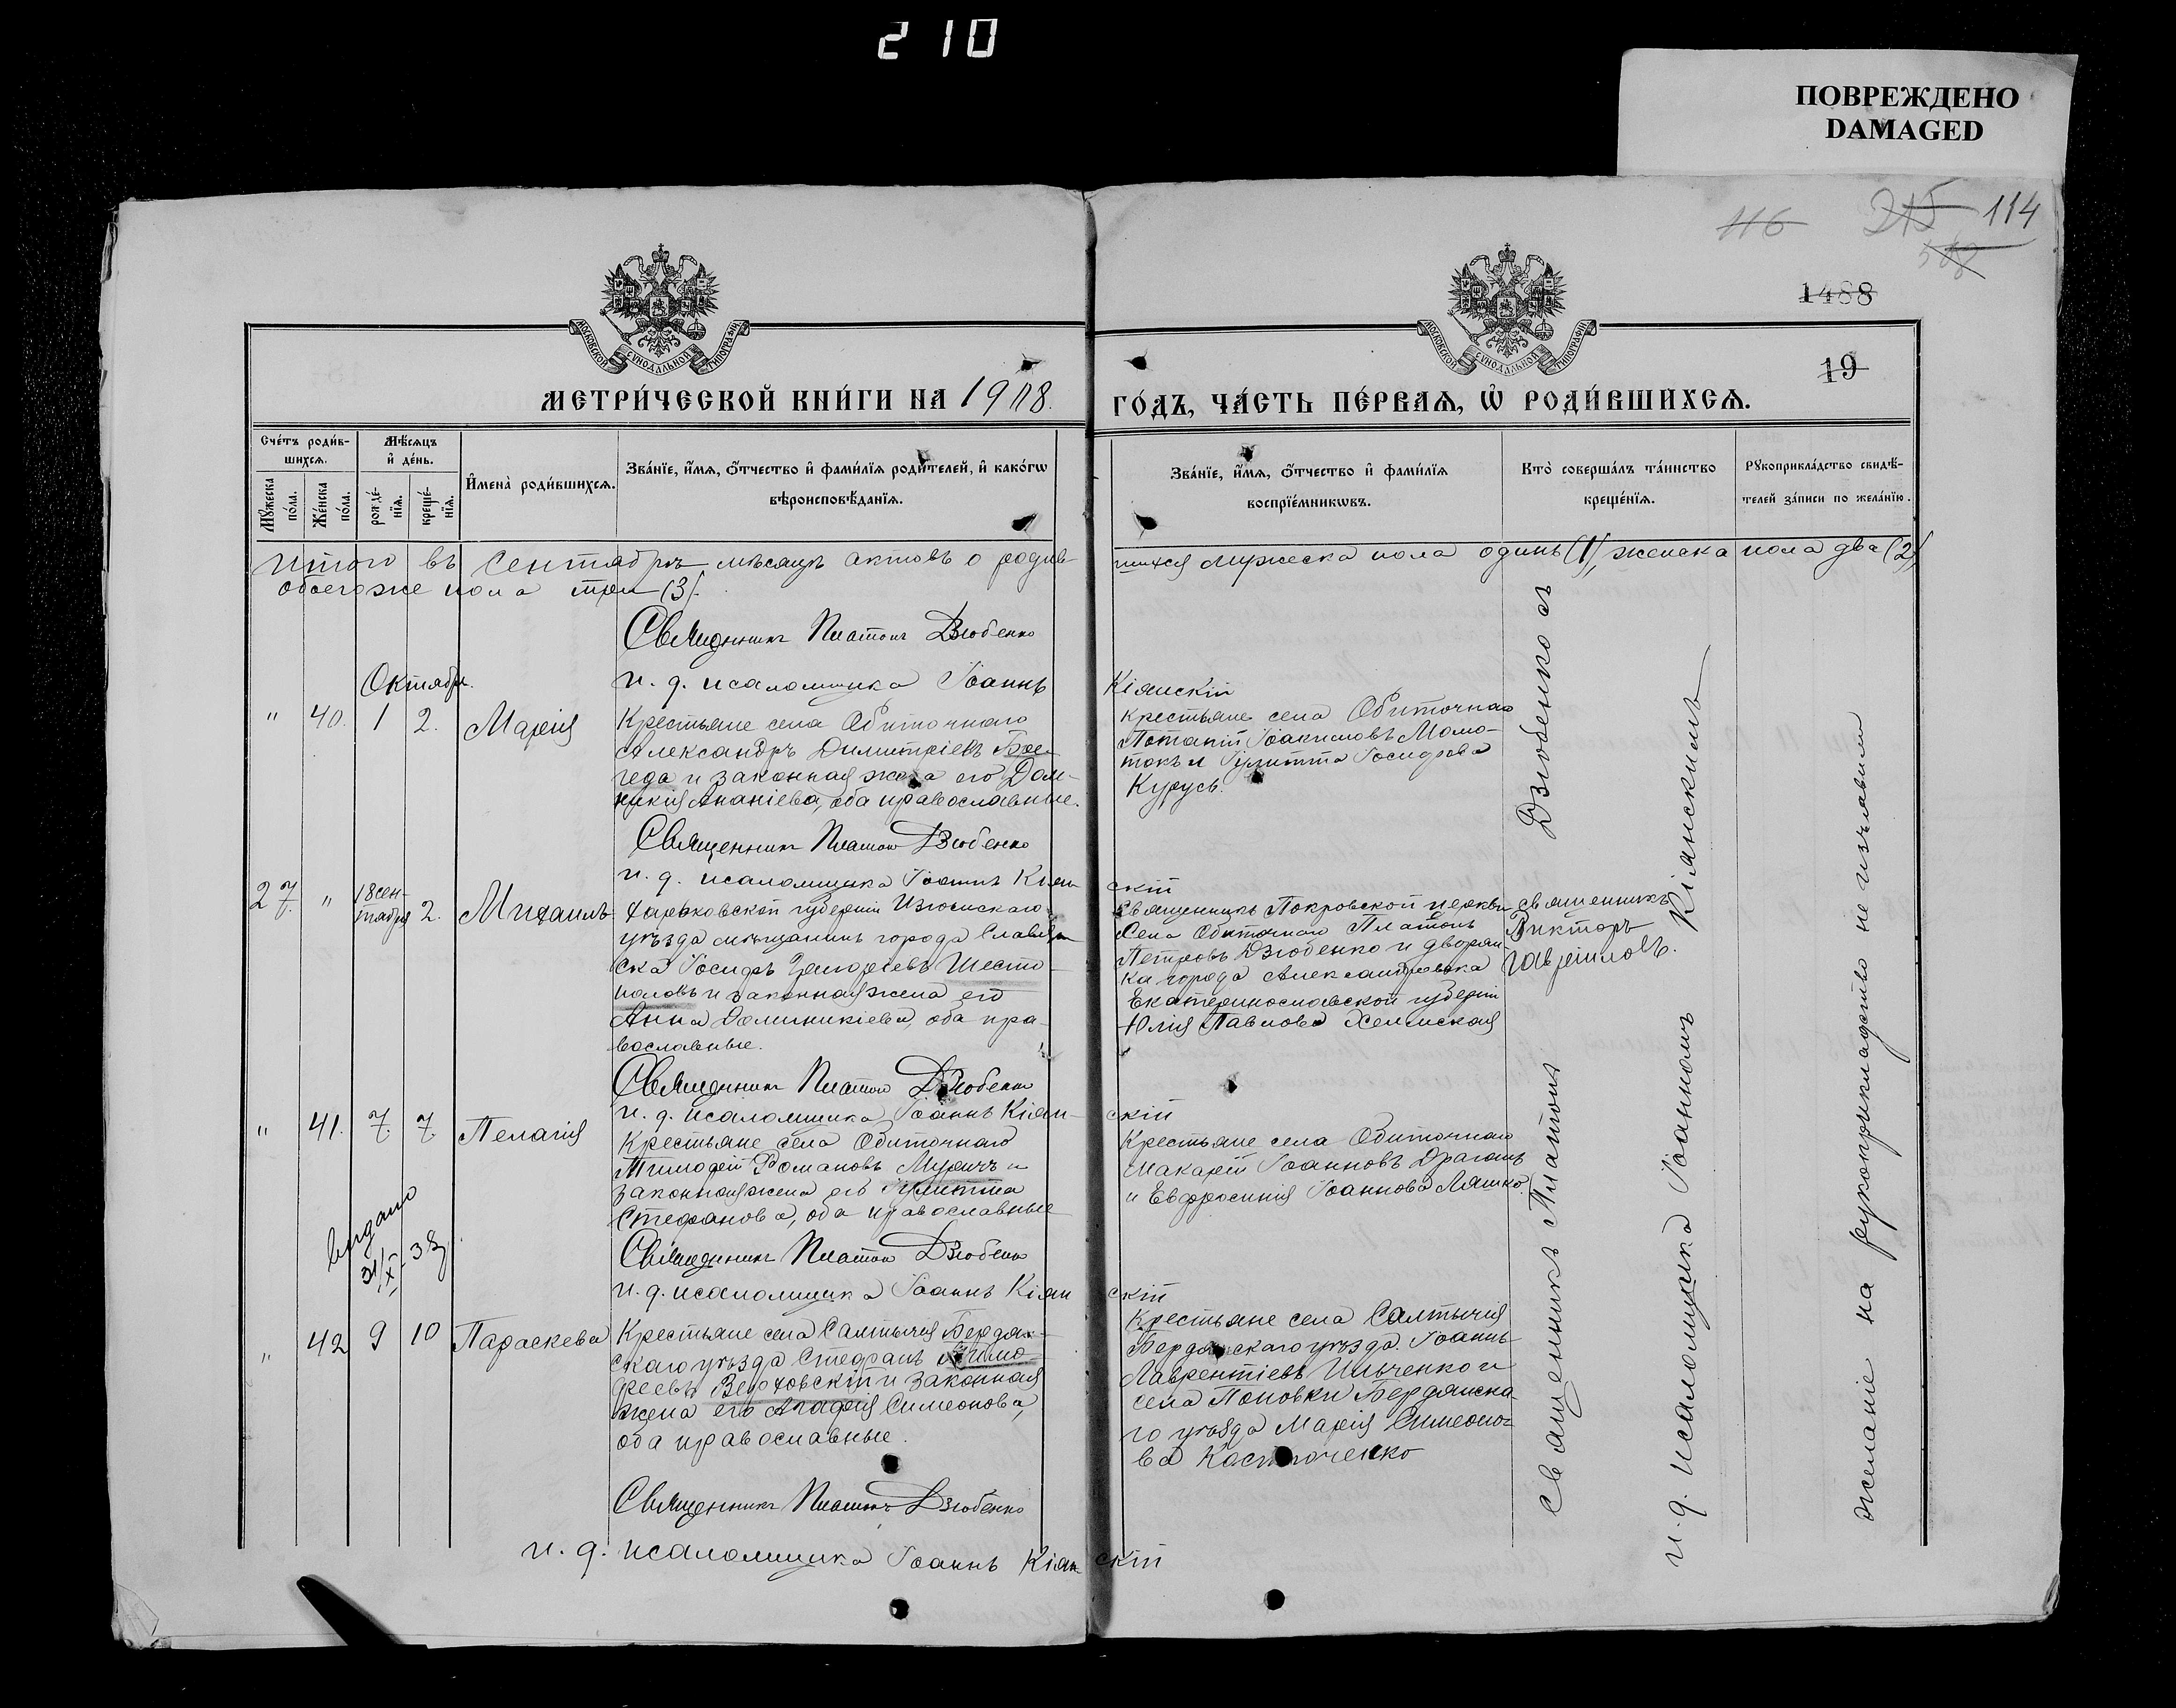 210
ПОВРЕЖДЕНО
DAMAGED
116 215 114
1488
19
МОСКОВСКОЙ СѴНОДАЛЬНОЙ ТИПОГРАФІИ
МОСКОВСКОЙ СѴНОДАЛЬНОЙ ТИПОГРАФІИ
МЕТРИ́ЧЕСКОЙ КНИ́ГИ НА 1918.
ГО́ДЪ, ЧА́СТЬ ПЕ́РВАѦ, Ѡ҆ РОДИ́ВШИХСѦ.
Сче́тъ роди́в-
шихсѧ.
Мѣ́сѧцъ
и҆ де́нь.
Мꙋ́жеска
по́ла.
Же́нска
по́ла.
рожде́-
нїѧ.
креще́-
нїѧ.
И҆мена̀ роди́вшихсѧ.
Зва́нїе, и҆́мѧ, ѻ҆́тчество и҆ фами́лїѧ роди́телей, и҆ како́гѡ
вѣроисповѣ́данїѧ.
Зва́нїе, и҆́мѧ, ѻ҆́тчество и҆ фами́лїѧ
воспрїе́мникѡвъ.
Кто̀ соверша́лъ та́инство
креще́нїѧ.
Рꙋкоприкла́дство свидѣ́-
телей за́писи по жела́нїю.
Итого въ Сентябрѣ мѣсяцѣ актовъ о родив-
шихся мужеска пола одинъ (1), женска пола два (2)
обоегоже пола три (3).
Священникъ Платонъ Дзюбенко
и. д. псаломщика Іоаннъ Кіянскій
Октябрь.
" 40. 1 2. Марія
Крестьяне села Обиточнаго
Александръ Димитріевъ
и законная жена его Дом-
никія Ананіева, оба православные.
Крестьяне села Обиточнаго
Потапій Іоакимовъ Момо-
токъ и Іулитта Іосифова
Курусь.
Священникъ Платонъ Дзюбенко
и. д. псаломщика Іоаннъ Кіянскій
27. " 18 сен-
тября 2. Михаилъ
Харьковской губерніи Изюмскаго
уѣзда мѣщанинъ города Славян-
ска Іосифъ Григоріевъ Шесто-
паловъ и законная жена его
Анна Доминикіева, оба пра-
вославные.
Священникъ Покровской церкви
Села Обиточнаго Платонъ
Петровъ Дзюбенко и дворян-
ка города Александровска
Екатеринославской губерніи
Юлія Павлова Хелмская
священникъ
Викторъ
Гавріиловъ.
Священникъ Платонъ Дзюбенко
и. д. псаломщика Іоаннъ Кіянскій
" 41. 7. 7. Пелагія
Крестьяне села Обиточнаго
Тимофей Романовъ и
законная жена его Іулитта
Стефанова, оба православные
Крестьяне села Обиточнаго
Макарій Іоанновъ Драганъ
и Евфросинія Іоаннова Ляшко.
Видано
31/X-38
Священникъ Платонъ Дзюбенко
и. д. псаломщика Іоаннъ Кіянскій
" 42 9 10 Параскева
Крестьяне села Салтычія Бердян-
скаго уѣзда Стефанъ Тимо-
феевъ Верховскій и законная
жена его Агафія Симеонова,
оба православные.
Крестьяне села Салтычія
Бердянскаго уѣзда Іоаннъ
Лаврентіевъ Ильченко и
села Поповки Бердянска
го уѣзда Марія Симеоно-
ва Костюченко
Священникъ Платонъ Дзюбенко
и. д. псаломщика Іоаннъ Кіянскій
Священникъ Платонъ Дзюбенко съ
и. д. псаломщика Іоанномъ Кіянскимъ
желаніе на рукоприкладство не изъявили